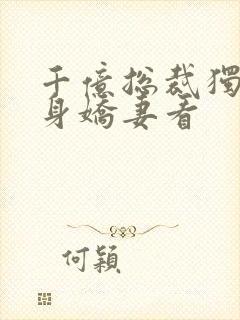 千億總裁獨
身嬌妻看
何穎